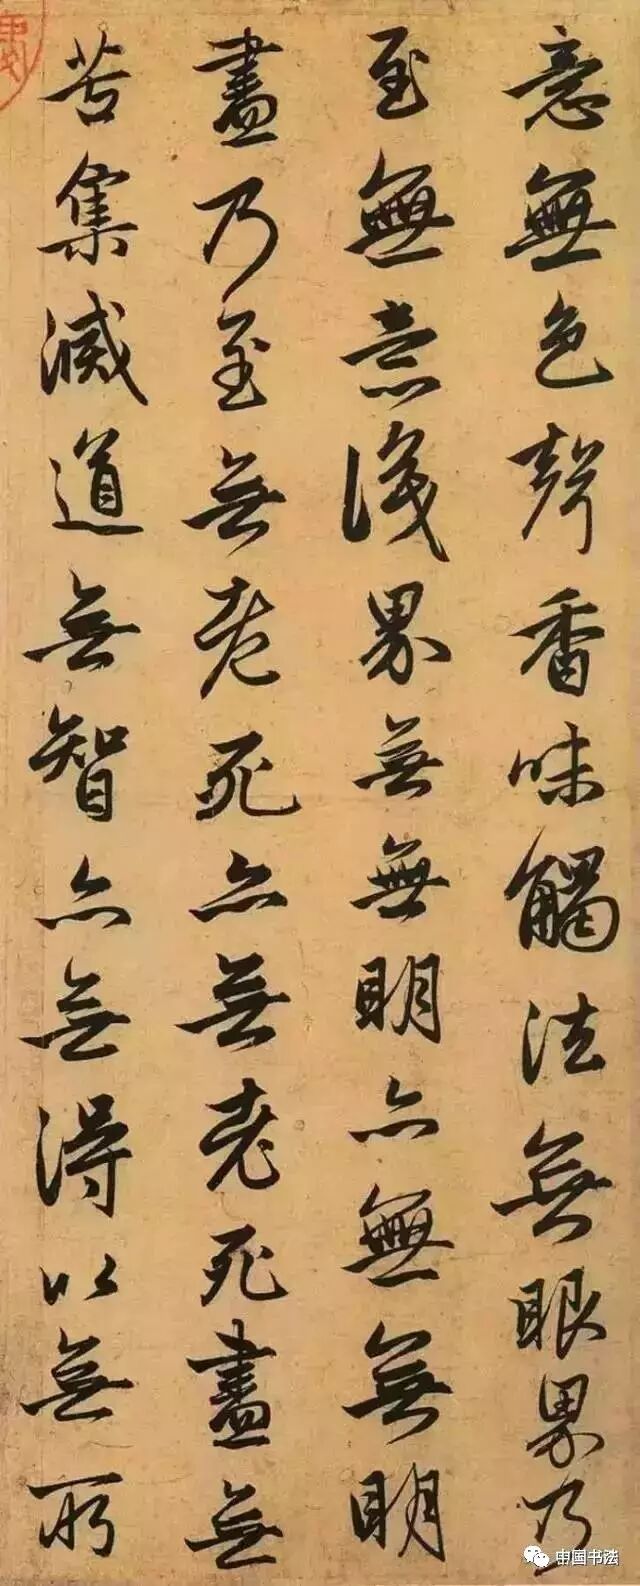 意無色聲香味觸法無眼界乃
至無意識界無無明亦無無明
盡乃至無老死亦無老死盡無
苦集滅道無智亦無得以無所
中国书法